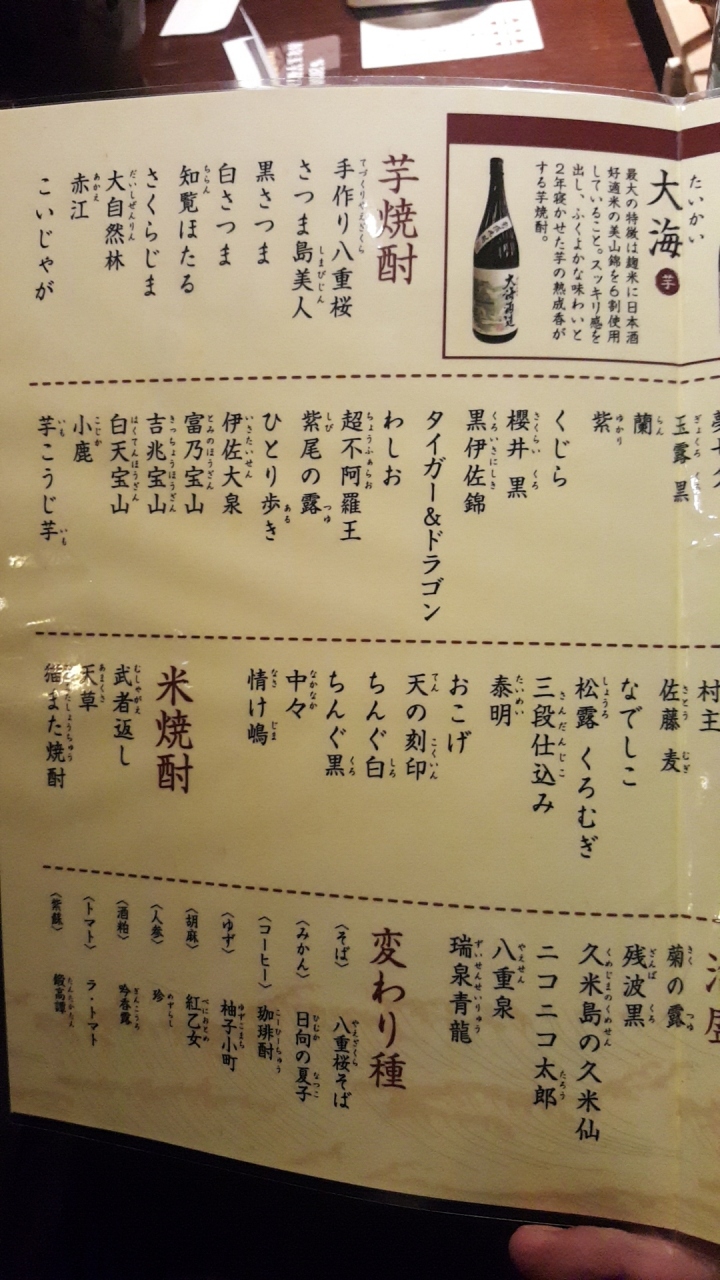 たいかい
大海 芋
最大の特徴は麹米に日本酒
好適米の美山錦を6割使用
していること。スッキリ感を
出し、ふくよかな味わいと
2年寝かせた芋の熟成香が
する芋焼酎。
芋焼酎
てづくりやえざくら
手作り八重桜
しまびじん
さつま島美人
黒さつま
白さつま
ちらん
知覧ほたる
さくらじま
だいしぜんりん
大自然林
あかえ
赤江
こいじゃが
ぎょくろ くろ
玉露 黒
らん
蘭
ゆかり
紫
くじら
さくらい くろ
櫻井 黒
くろいさにしき
黒伊佐錦
タイガー&ドラゴン
わしお
ちょうふぁらお
超不阿羅王
しび つゆ
紫尾の露
ある
ひとり歩き
いさたいせん
伊佐大泉
とみのほうざん
富乃宝山
きっちょうほうざん
吉兆宝山
はくてんほうざん
白天宝山
こじか
小鹿
いも いも
芋こうじ芋
村主
さとう むぎ
佐藤 麦
なでしこ
しょうろ
松露 くろむぎ
さんだんじこ
三段仕込み
たいめい
泰明
おこげ
てん こくいん
天の刻印
しろ
ちんぐ白
くろ
ちんぐ黒
なかなか
中々
なさ じま
情け嶋
米焼酎
むしゃがえ
武者返し
あまくさ
天草
猫また焼酎
きく つゆ
菊の露
ざんぱ くろ
残波黒
くめじまのくめせん
久米島の久米仙
たろう
ニコニコ太郎
やえせん
八重泉
ずいせんせいりゅう
瑞泉青龍
変わり種
やえざくら
〈そば〉 八重桜そば
ひむか なつこ
〈みかん〉 日向の夏子
こーひーちゅう
〈コーヒー〉 珈琲酎
ゆずこまち
〈ゆず〉 柚子小町
べにおとめ
〈胡麻〉 紅乙女
めずらし
〈人参〉 珍
ぎんこうろ
〈酒粕〉 吟香露
〈トマト〉 ラ・トマト
たんたかたん
〈紫蘇〉 鍛高譚